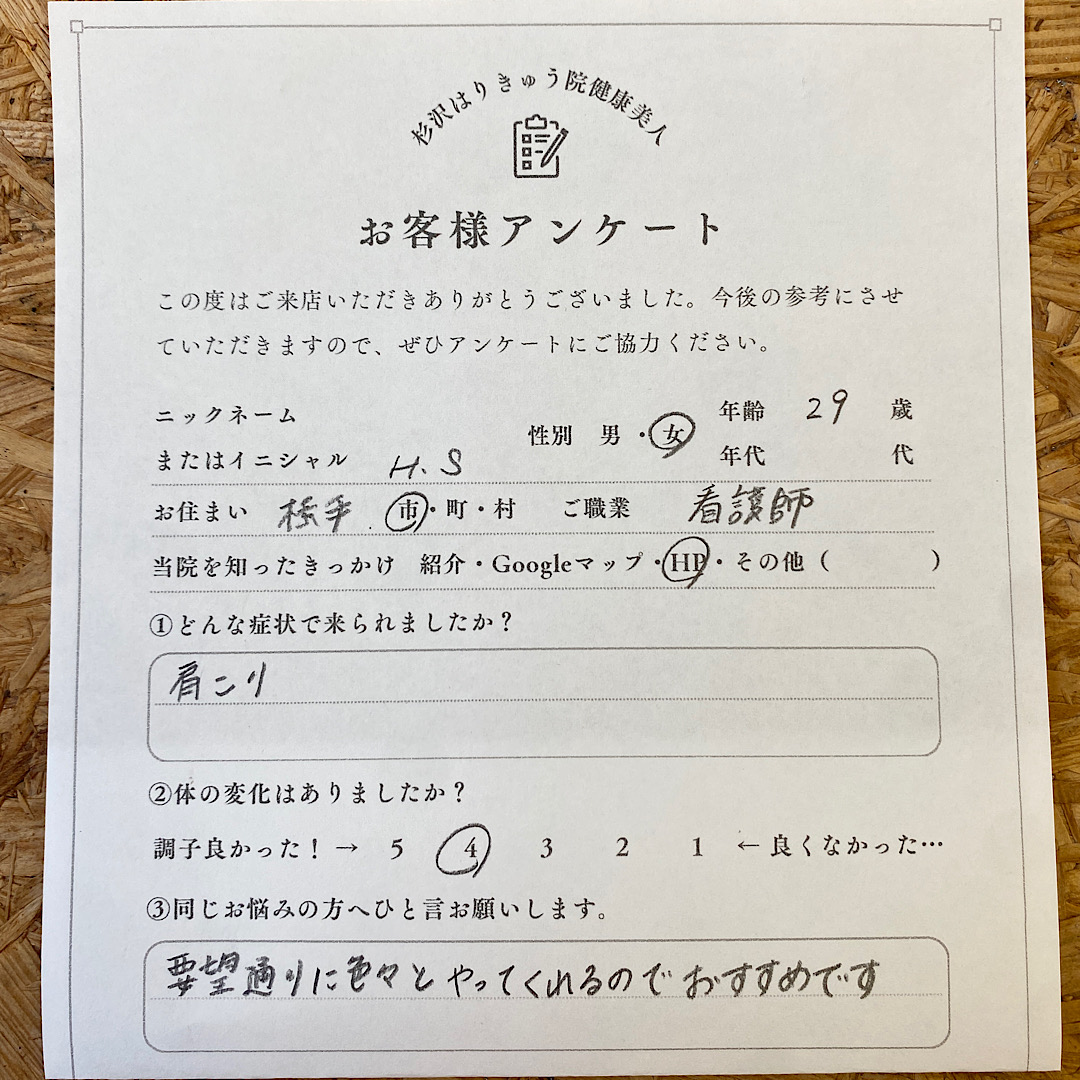 杉沢はりきゅう院健康美人
お客様アンケート
この度はご来店いただきありがとうございました。今後の参考にさせ
ていただきますので、ぜひアンケートにご協力ください。
ニックネーム
またはイニシャル H.S
性別 男・女
年齢 29 歳
年代 代
お住まい 横手 市・町・村 ご職業 看護師
当院を知ったきっかけ 紹介・Googleマップ・HP・その他( )
①どんな症状で来られましたか?
肩こり
②体の変化はありましたか?
調子良かった!→ 5 4 3 2 1 ←良くなかった…
③同じお悩みの方へひと言お願いします。
要望通りに色々とやってくれるのでおすすめです